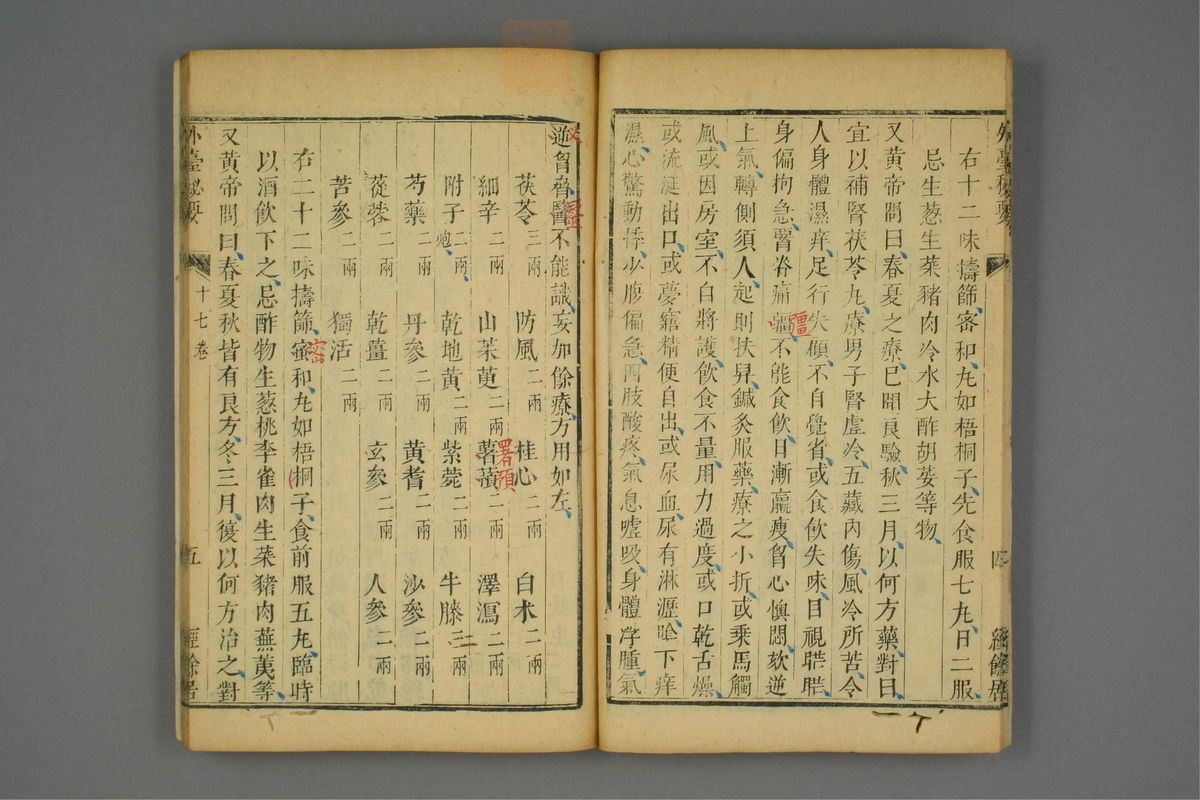 外臺秘要
四
經餘居
右十二味擣篩蜜和丸如梧桐子先食服七丸日二服
忌生葱生菜豬肉冷水大酢胡荽等物
又黃帝問曰春夏之療已聞良驗秋三月以何方藥對曰
宜以補腎茯苓丸療男子腎虛冷五藏內傷風冷所苦令
人身體濕痒足行失顧不自覺省或食飲失味目視䀮䀮
身偏拘急腎脊痛彊不能食飲日漸羸瘦胷心懊悶欬逆
彊
上氣轉側須人起則扶舁鍼灸服藥療之小折或乘馬觸
風或因房室不自將護飲食不量用力過度或口乾舌燥
或流涎出口或夢寤精便自出或尿血尿有淋瀝陰下痒
濕心驚動悸少腹偏急四肢酸疼氣息噓吸身體浮腫氣
逆胷脅醫不能識妄加餘療方用如左
茯苓三兩 防風二兩 桂心二兩 白朮二兩
細辛二兩 山茱萸二兩 薯蕷二兩 澤瀉二兩
署預
附子二兩炮 乾地黃二兩 紫菀二兩 牛膝三兩
二
芍藥二兩 丹參二兩 黃耆二兩 沙參二兩
蓯蓉二兩 乾薑二兩 玄參二兩 人參二兩
苦參二兩 獨活二兩
右二十二味擣篩蜜和丸如梧桐子食前服五丸臨時
密
以酒飲下之忌酢物生葱桃李雀肉生菜豬肉蕪荑等
又黃帝問曰春夏秋皆有良方冬三月復以何方治之對
外臺祕要
十七卷
五
經餘居